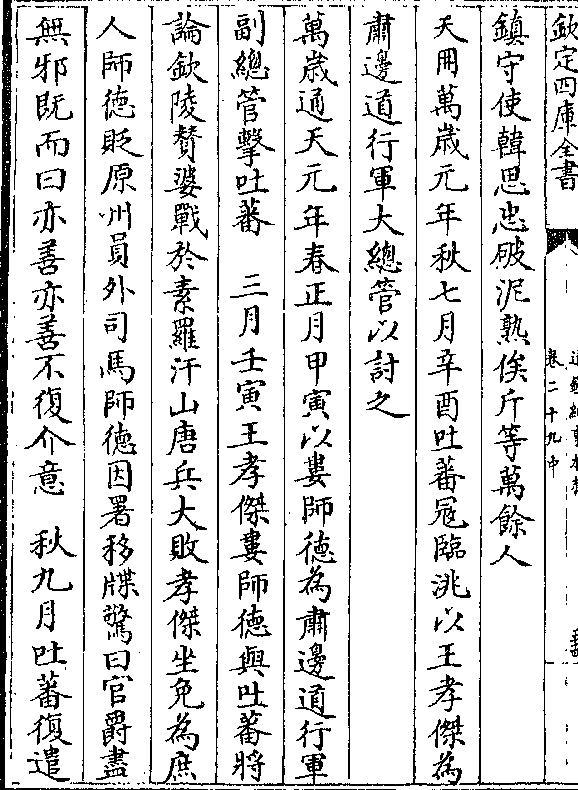 欽定四庫全書
卷二十九中
鎮守使韓思忠破泥熟俟斤等萬餘人
天冊萬歲元年秋七月辛酉吐蕃冦臨洮以王孝傑為
肅邊道行軍大總管以討之
萬歲通天元年春正月甲寅以婁師德為肅邊道行軍
副總管擊吐蕃　三月壬寅王孝傑婁師德與吐蕃將
論欽陵賛婆戰於素羅汗山唐兵大敗孝傑坐免為庶
人師德貶原州員外司馬師德因署移牒驚曰官爵盡
無邪既而曰亦善亦善不復介意　秋九月吐蕃復遣